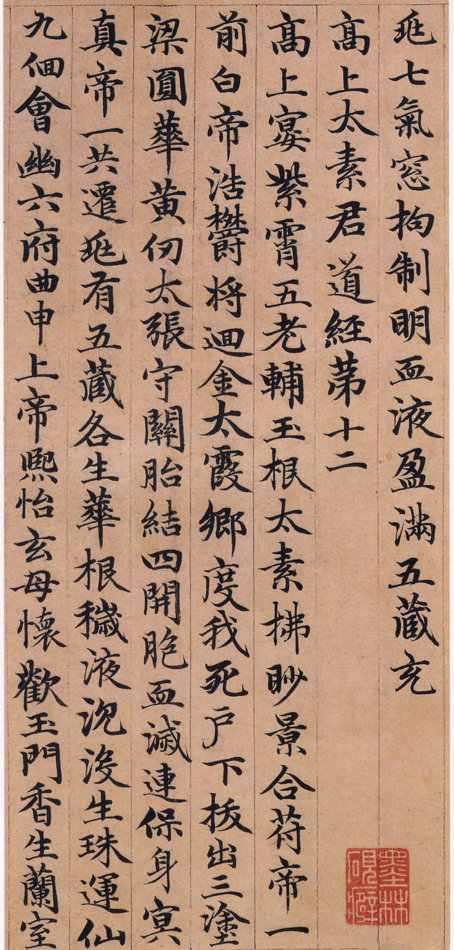 兆七氣窓拘制明血液盈滿五藏充
高上太素君道經苐十二
高上宴紫霄五老輔玉根太素拂眇景合苻帝一
前白帝浩欝將迴金太霞鄉度我死户下拔出三塗
梁圓華黄仞太張守關胎結四開胞血滅連保身冥
真帝一共遷兆有五藏各生華根穢液沉沒生珠運仙
九佪會幽六府曲申上帝熙怡玄母懷歡玉門香生蘭室
墨林硯癖